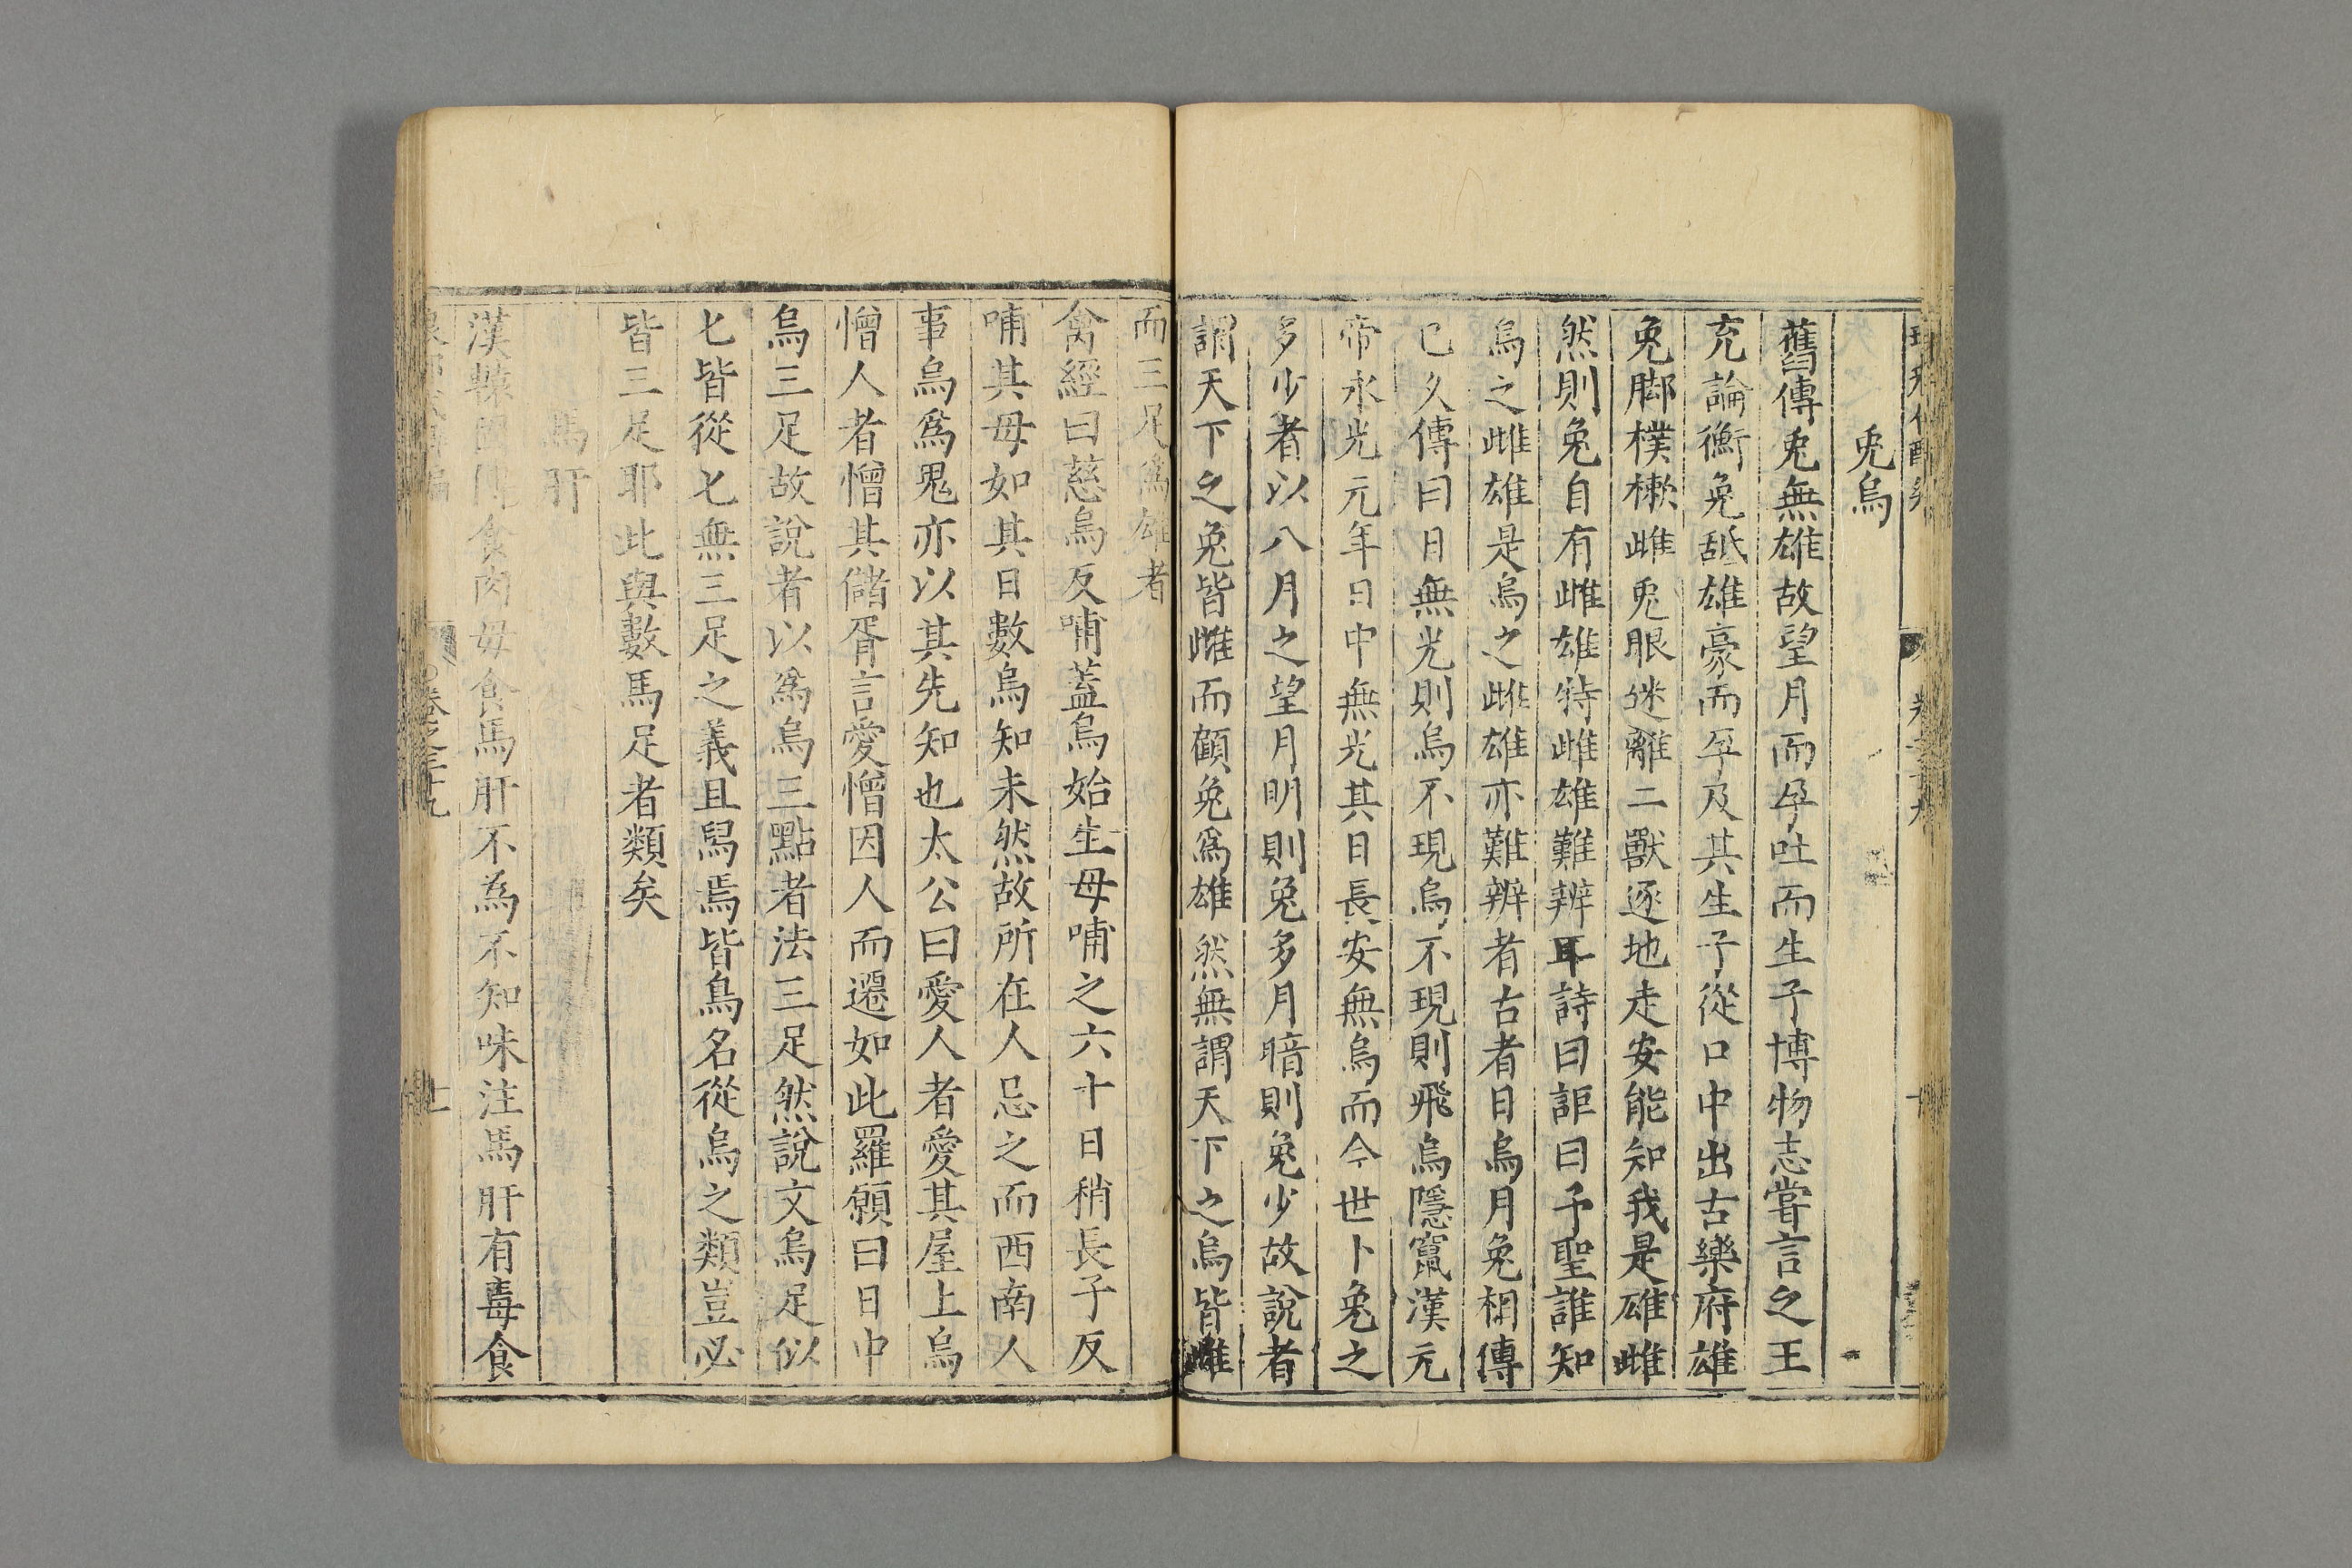 兎烏
舊傳兎無雄故望月而孕吐而生子博物志嘗言之王
充論衡兔舐雄豪而孕及其生子從口中出古樂府雄
兔脚樸樕雌兎眼迷離二獸逐地走安能知我是雄雌
然則兔自有雌雄特雌雄難辨耳詩曰詎曰予聖誰知
烏之雌雄是烏之雌雄亦難辨者古者日烏月兔相傳
已久傳曰日無光則烏不現烏不現則飛烏隱竄漢元
帝永光元年日中無光其日長安無烏而今世卜兔之
多少者以八月之望月明則兔多月暗則兔少故說者
謂天下之兔皆雌而顧兔爲雄然無謂天下之烏皆雌
而三足爲雄者
禽經曰慈烏反哺蓋烏始生母哺之六十日稍長子反
哺其母如其日數烏知未然故所在人忌之而西南人
事烏爲鬼亦以其先知也太公曰愛人者愛其屋上烏
憎人者憎其儲胥言愛憎因人而遷如此羅願曰日中
烏三足故說者以爲烏三點者法三足然說文烏足似
匕皆從匕無三足之義且舄焉皆鳥名從烏之類豈必
皆三足耶此與數馬足者類矣
馬肝
漢轅固傳食肉毋食馬肝不為不知味注馬肝有毒食
卷之三十九
十一